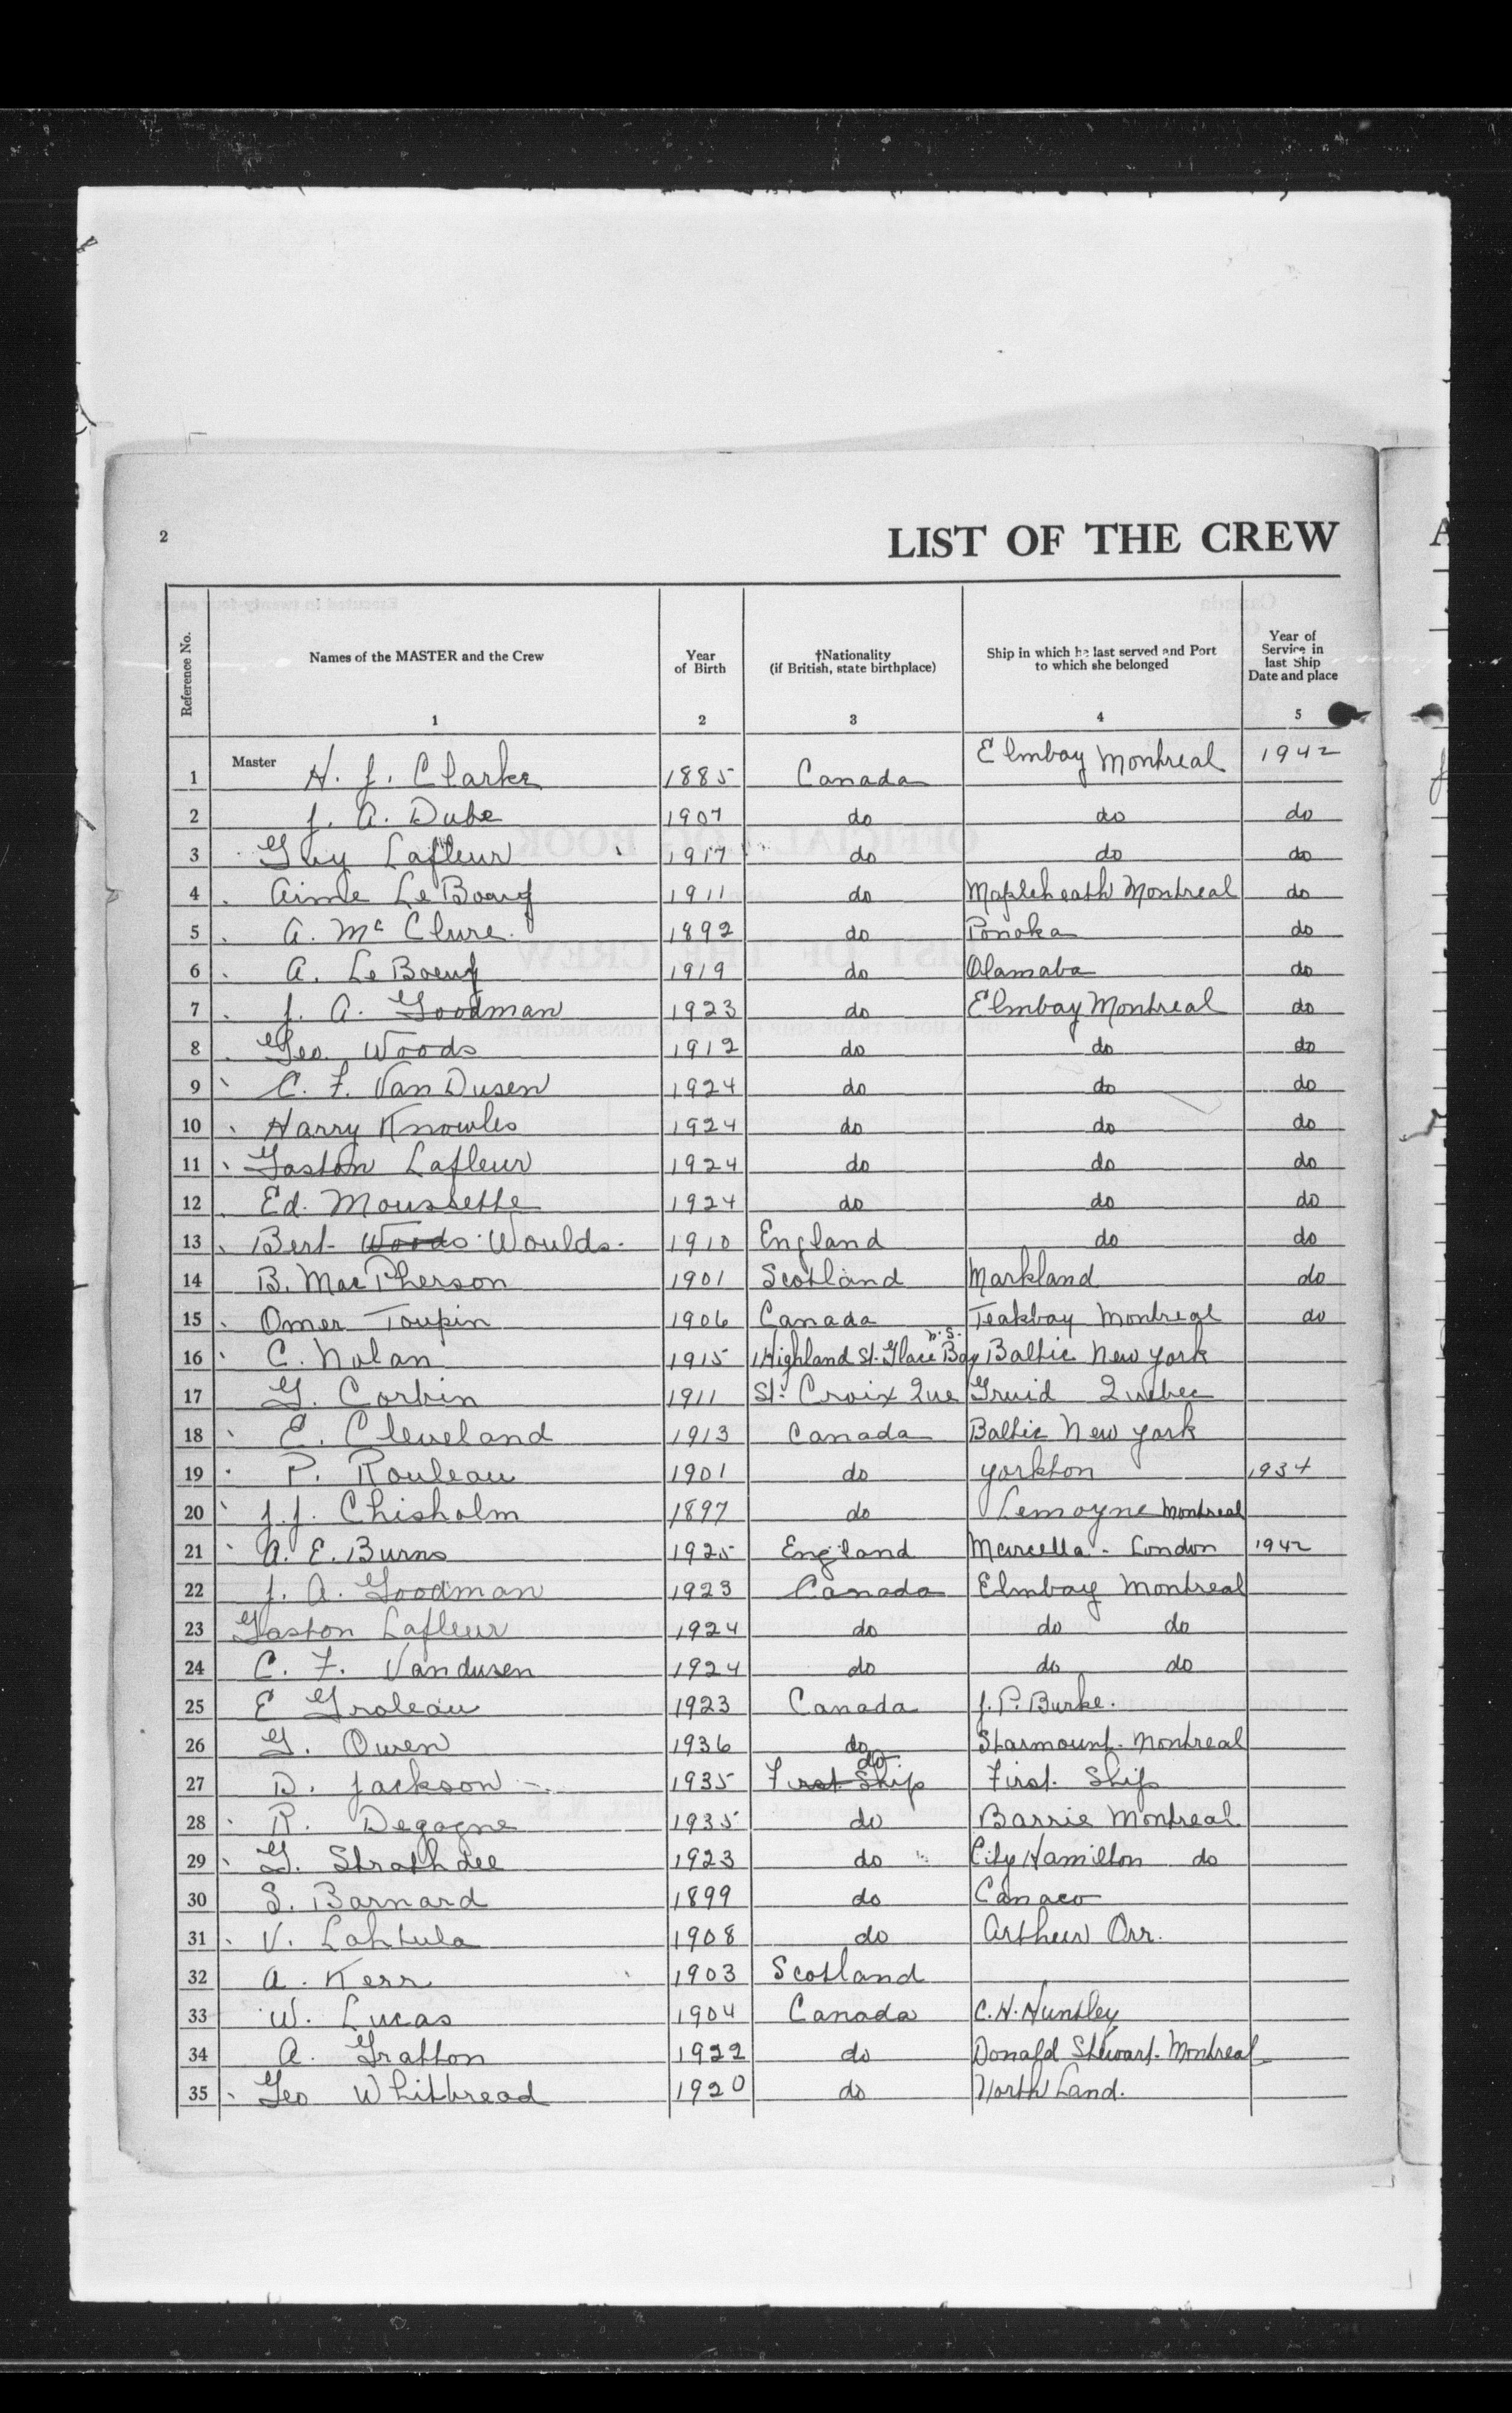 2
LIST OF THE CREW
Reference No.
Names of the MASTER and the Crew
1
Year
of Birth
2
†Nationality
(if British, state birthplace)
3
Ship in which he last served and Port
to which she belonged
4
Year of
Service in
last Ship
Date and place
5
1 Master H. J. Clarke 1885 Canada Elmbay Montreal 1942
2 J. A. Dube 1907 do do do
3 Guy Lafleur 1917 do do do
4 Aime Le Boeuf 1911 do Mapleheath Montreal do
5 A. Mc Clure. 1892 do Ponoka do
6 A. Le Boeuf 1919 do Olamaba do
7 J. A. Goodman 1923 do Elmbay Montreal do
8 Geo Woods 1912 do do do
9 C. F. Van Dusen 1924 do do do
10 Harry Knowles 1924 do do do
11 Gaston Lafleur 1924 do do do
12 Ed. Moussette 1924 do do do
13 Bert Woods Woulds. 1910 England do do
14 B. MacPherson 1901 Scotland Markland do
15 Omer Toupin 1906 Canada Teakbay Montreal do
16 C. Nolan 1915 1 Highland St. Glace Bay N.S. Baltic New York
17 G. Corbin 1911 St. Croix Que Gruid Quebec
18 E. Cleveland 1913 Canada Baltic New York
19 P. Rouleau 1901 do Yorkton 1934
20 J. J. Chisholm 1897 do Lemoyne Montreal
21 A. E. Burns 1925 England Marcella - London 1942
22 J. A. Goodman 1923 Canada Elmbay Montreal
23 Gaston Lafleur 1924 do do do
24 C. F. Vandusen 1924 do do do
25 E Groleau 1923 Canada J. P. Burke.
26 G. Owen 1936 do Starmount. Montreal
27 D. Jackson 1935 First Ship do First Ship
28 R. Degagne 1935 do Barrie Montreal
29 G. Strathdee 1923 do City Hamilton do
30 S. Barnard 1899 do Canaco
31 V. Lahtula 1908 do Arthur Orr.
32 A. Kerr 1903 Scotland
33 W. Lucas 1904 Canada C. H. Huntley
34 A. Gratton 1922 do Donald Stewart. Montreal
35 Geo Whitbread 1920 do North Land.